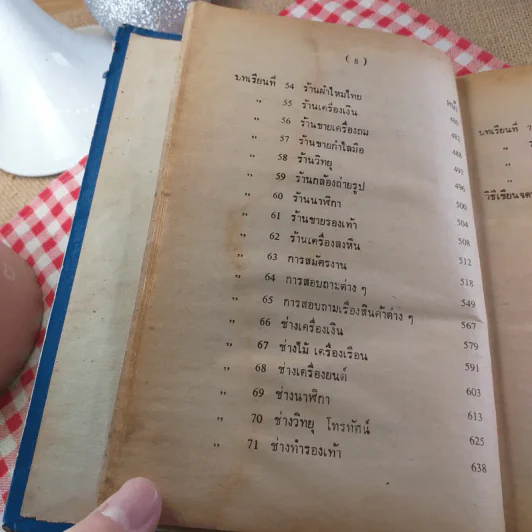 ( 8 )
หน้า
บทเรียนที่ 54 ร้านผ้าไหมไทย 480
" 55 ร้านเครื่องเงิน 482
" 56 ร้านขายเครื่องถม 488
" 57 ร้านขายกำไลมือ 492
" 58 ร้านวิทยุ 496
" 59 ร้านกล้องถ่ายรูป 500
" 60 ร้านนาฬิกา 504
" 61 ร้านขายรองเท้า 508
" 62 ร้านเครื่องลงหิน 512
" 63 การสมัครงาน 518
" 64 การสอบถามต่าง ๆ 549
" 65 การสอบถามเรื่องสินค้าต่าง ๆ 567
" 66 ช่างเครื่องเงิน 579
" 67 ช่างไม้ เครื่องเรือน 591
" 68 ช่างเครื่องยนต์ 603
" 69 ช่างนาฬิกา 613
" 70 ช่างวิทยุ โทรทัศน์ 625
" 71 ช่างทำรองเท้า 638
บทเรียนที่ 7
"
"
วิธีเขียนจด